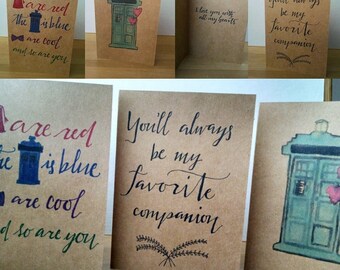 are red
the is blue
are cool
and so are you
I love you with
all my hearts
You'll always
be my
favorite
companion
are red
the is blue
are cool
and so are you
You'll always
be my
favorite
companion